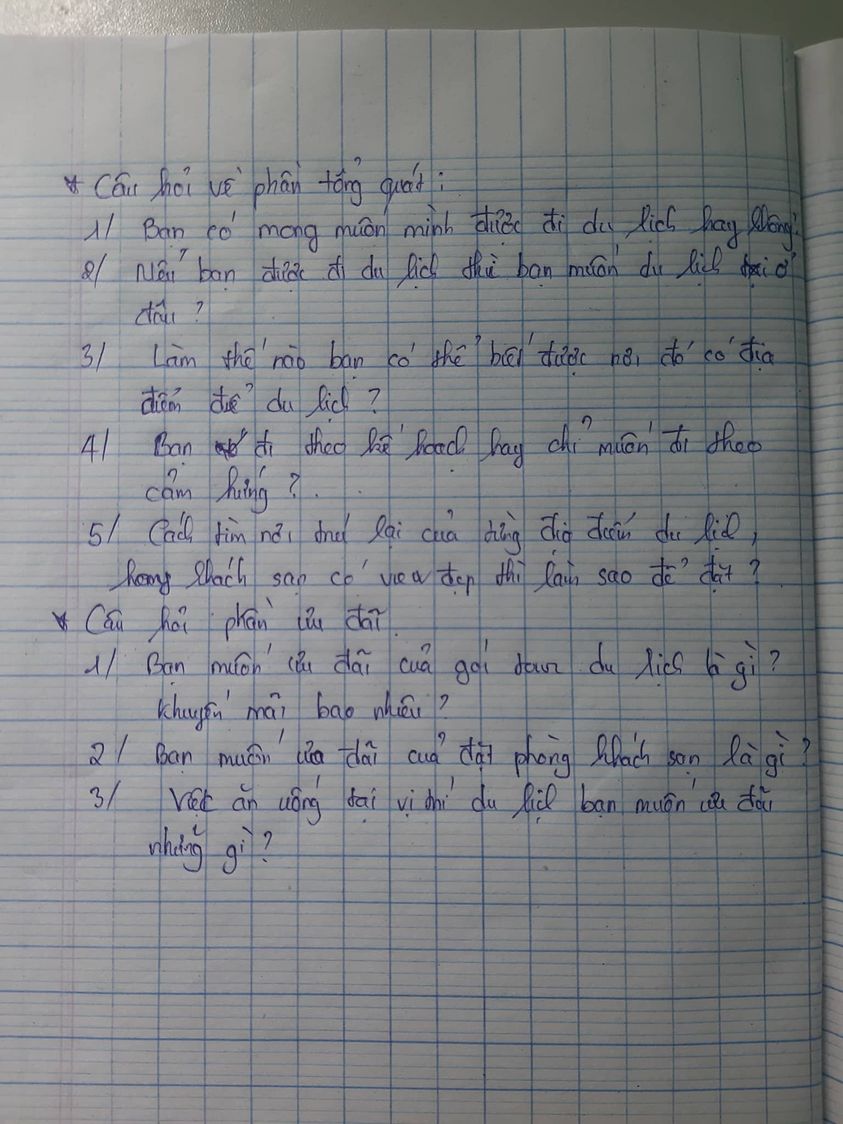 * Câu hỏi về phần tổng quát :
1/ Bạn có mong muốn mình được đi du lịch hay không?
2/ Nếu bạn được đi du lịch thì bạn muốn du lịch ở
đâu ?
3/ Làm thế nào bạn có thể biết được nơi đó có địa
điểm để du lịch ?
4/ Bạn đi theo kế hoạch hay chỉ muốn đi theo
cảm hứng ?
5/ Cách tìm nơi trú lại của từng địa điểm du lịch,
hong khách sạn có view đẹp thì làm sao để đặt ?
* Câu hỏi phần ưu đãi
1/ Bạn muốn ưu đãi của gói tour du lịch là gì ?
Khuyến mãi bao nhiêu ?
2/ Bạn muốn ưu đãi của đặt phòng khách sạn là gì ?
3/ Việc ăn uống tại vị trí du lịch bạn muốn ưu đãi
những gì ?